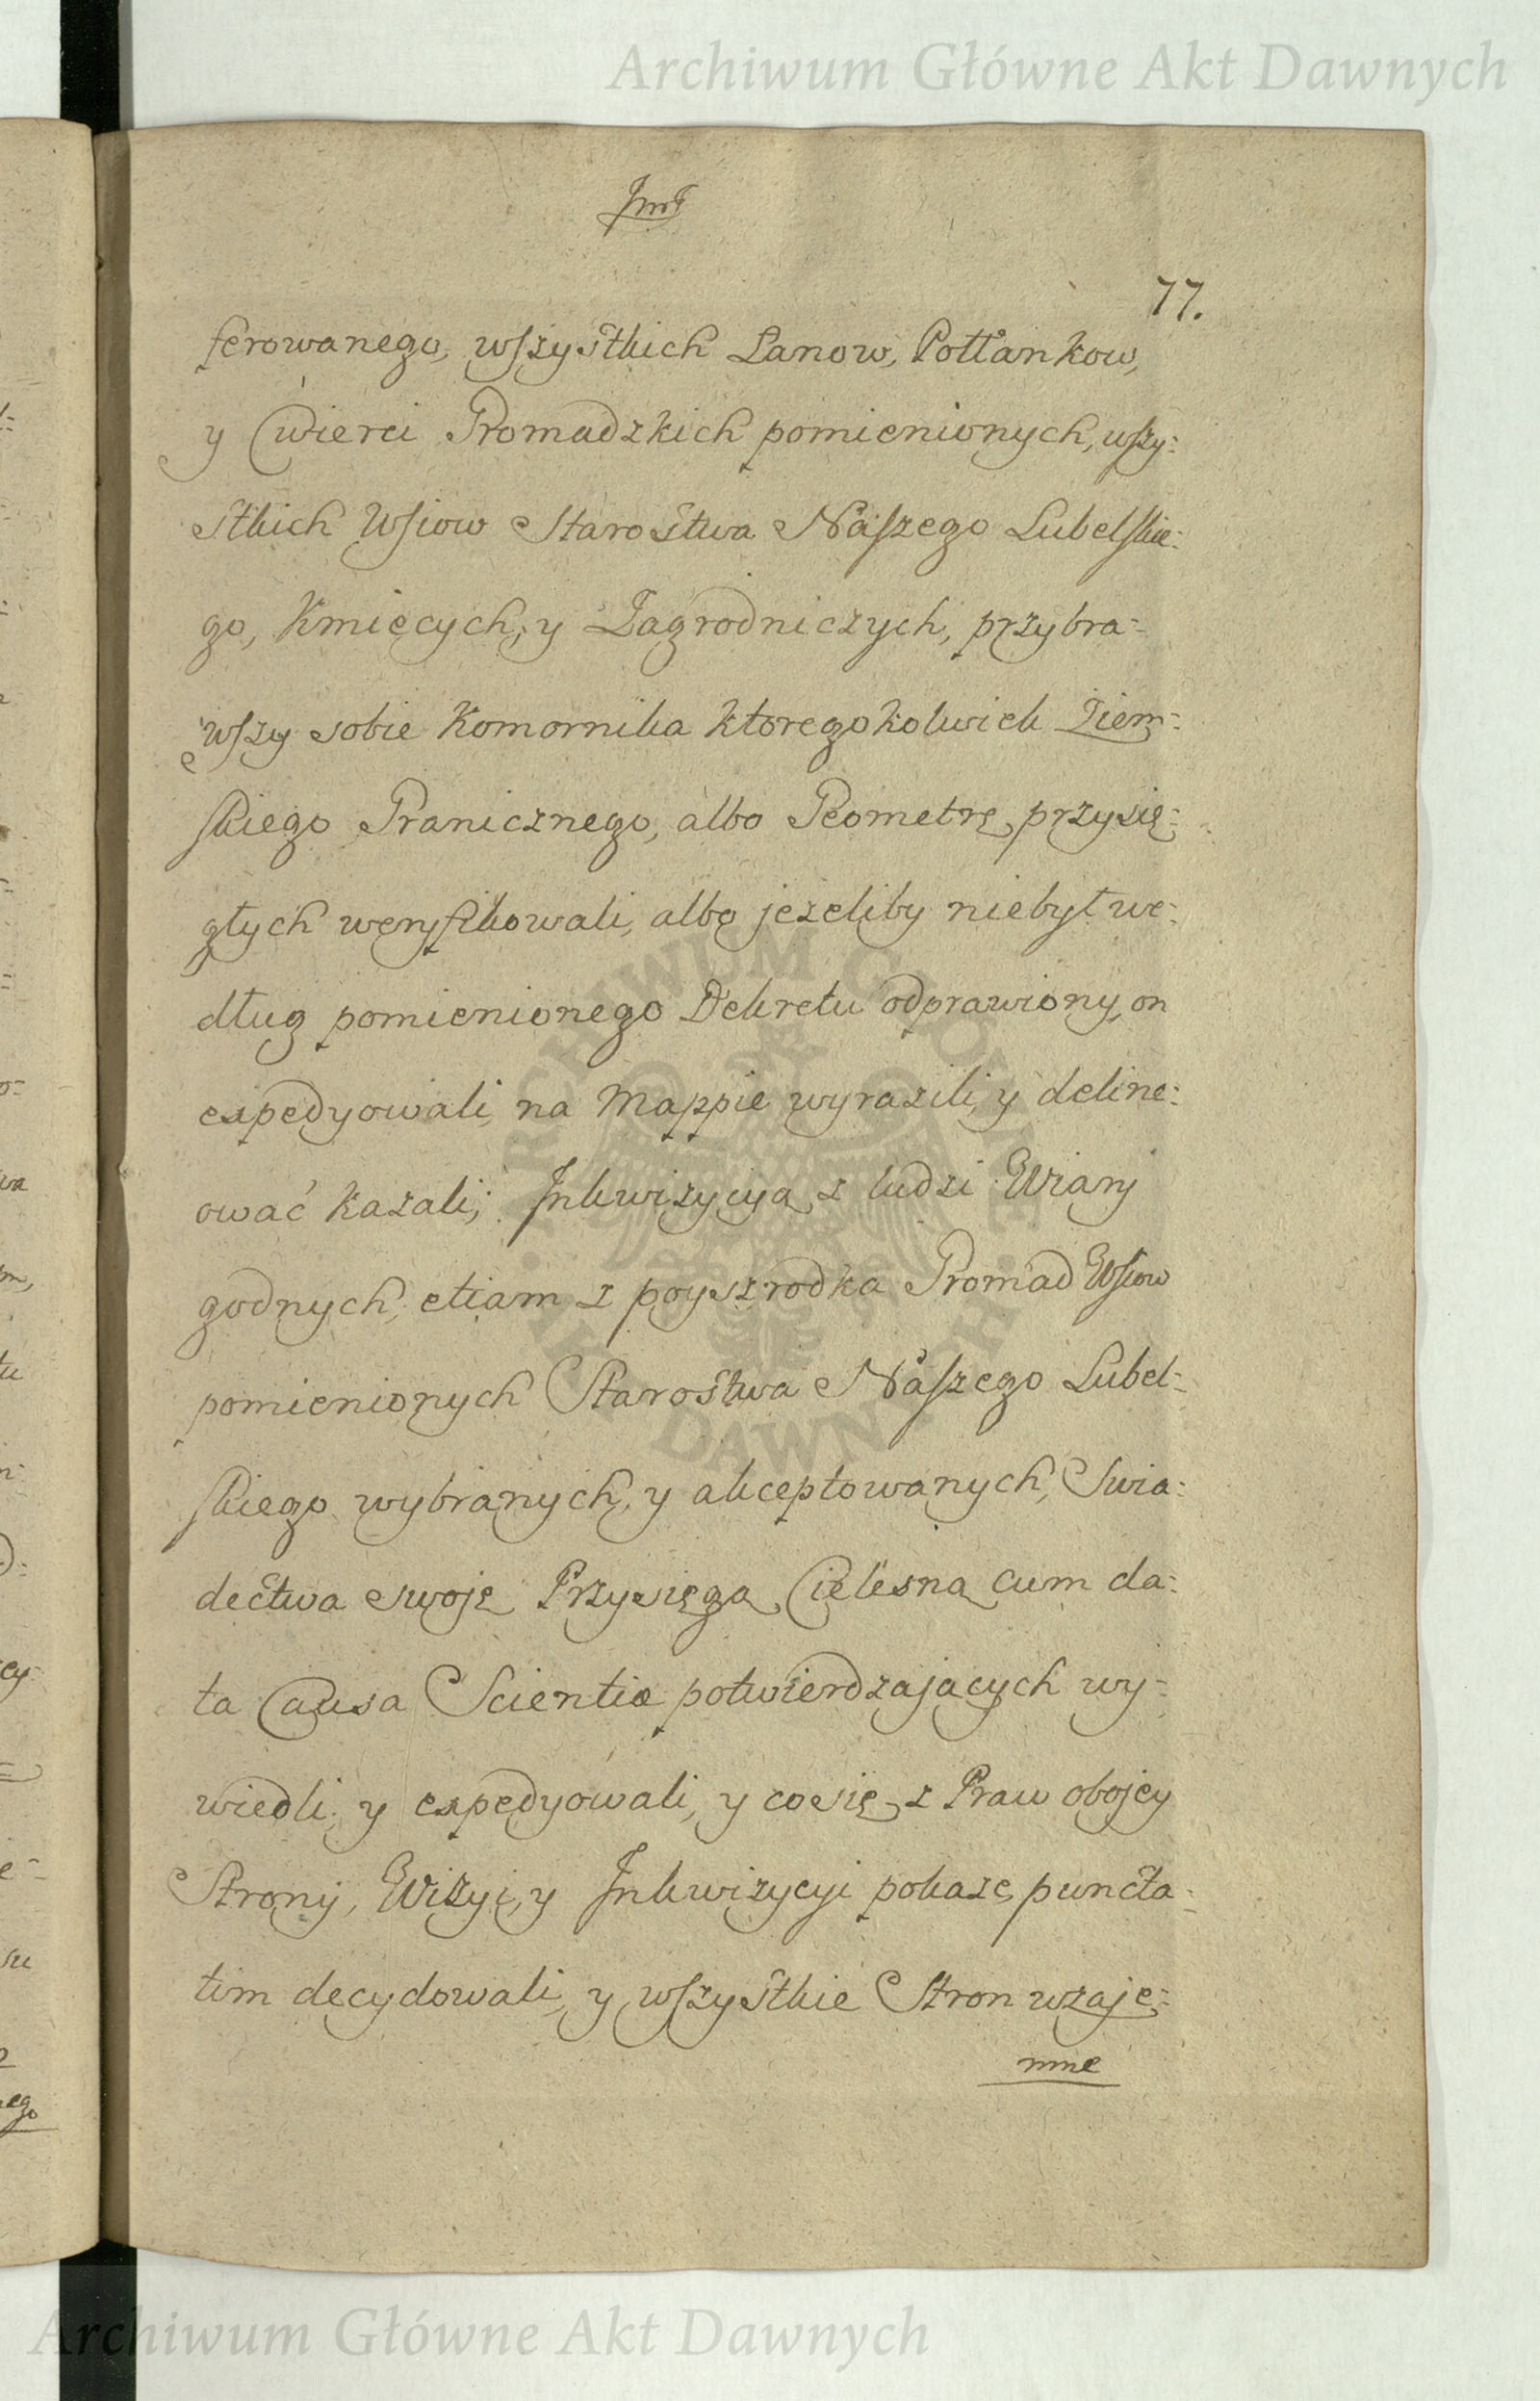 Archiwum Główne Akt Dawnych
77.
ferowanego, wszystkich Łanow, Połłankow,
y Cwierci Gromadzkich pomienionych, wszy=
stkich Wsiow Starostwa Naszego Lubelskie=
go, Kmięcych, y Zagrodniczych, przybra=
wszy sobie Komornika ktoregokolwiek Ziem=
skiego Granicznego, albo Geometrę przysię=
głych weryfikowali, albo jeżeliby niebył we=
dług pomienionego Dekretu odprawiony, on
expedyowali, na Mappie wyrazili, y deline=
ować kazali; Inkwizycyą z ludzi Wiary
godnych, etiam z poyszrodka Gromad Wsiow
pomienionych Starostwa Naszego Lubel=
skiego wybranych, y akceptowanych, Swia=
dectwa swoje Przysięgą Cielesną cum da=
ta Causa Scientiæ potwierdzających wy=
wiedli, y expedyowali, y co się z Praw obojey
Strony, Wizyi, y Inkwizycyi pokaże, puncta=
tim decydowali, y wszystkie Stron wzaje=
mne
Archiwum Główne Akt Dawnych